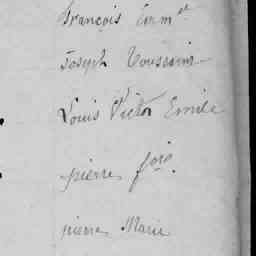 François Emm.el
Joseph Toussaint
Louis Victor Emile
pierre fois
pierre Marie